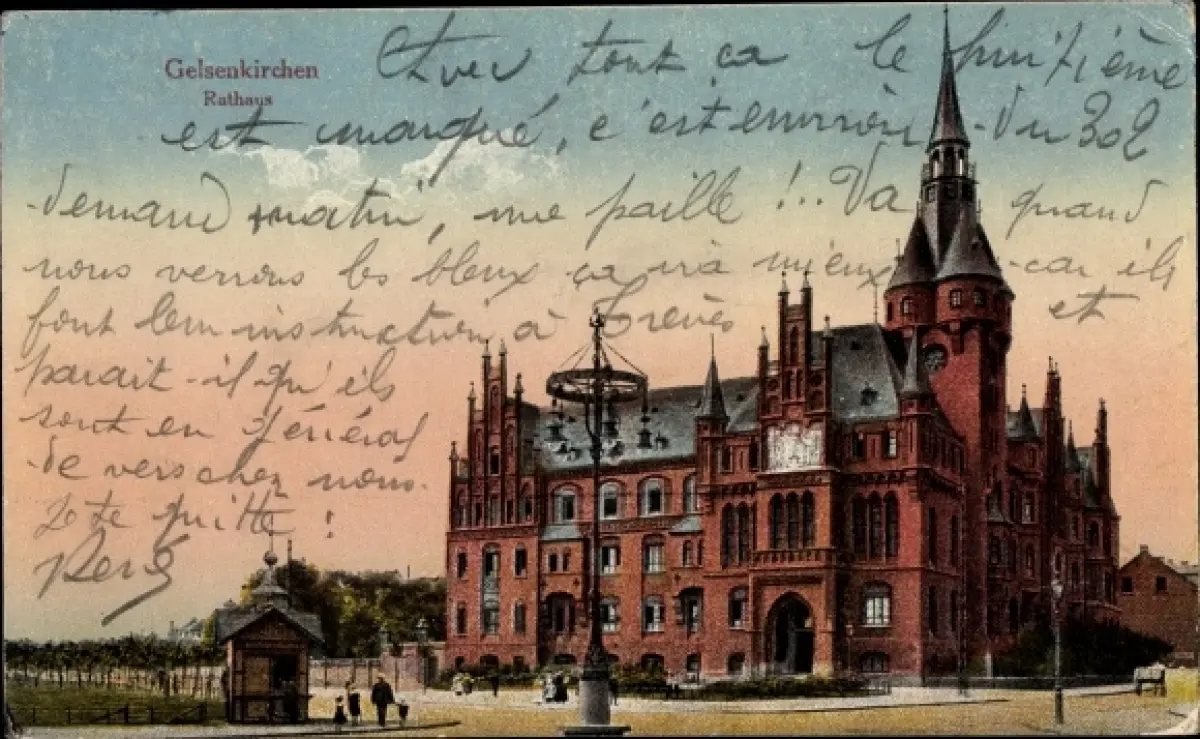 Gelsenkirchen
Rathaus
Avec tout ça le huitième
est marqué, c'est environ du 302
demain matin, une paille !.. Va quand
nous verrons les bleux ça ira mieux car ils
font leur instruction à Trèves et
parait-il qu'ils
sont en général
de vers chez nous.
Je te quitte !